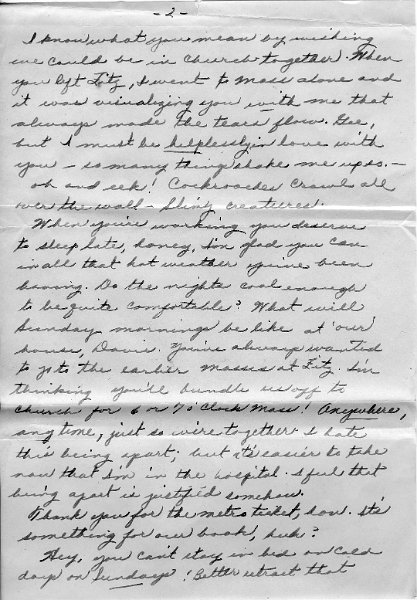 - 2 -
I know what you mean by wishing
we could be in church together. When
you left Fitz, I went to Mass alone and
it was visualizing you with me that
always made the tears flow. Gee,
but I must be helplessly in love with
you – so many things shake me up so. –
oh and eek! Cockroaches crawl all
over the wall – Slimy creatures.
When you're working you deserve
to sleep late, honey. I'm glad you can
in all that hot weather you've been
having. Do the nights cool enough
to be quite comfortable? What will
Sunday mornings be like at 'our'
house, Davie. You've always wanted
to go to the earlier masses at Fitz. I'm
thinking you'll bundle us off to
church for 6 or 7 o'clock Mass! Anywhere,
any time, just so we're together. I hate
this being apart; but it's easier to take
now that I'm in the hospital. I feel that
being apart is justified somehow.
Thank you for the metro ticket, hon. It's
something for our book, huh?
Hey, you can't stay in bed on cold
days on Sundays! Better retract that